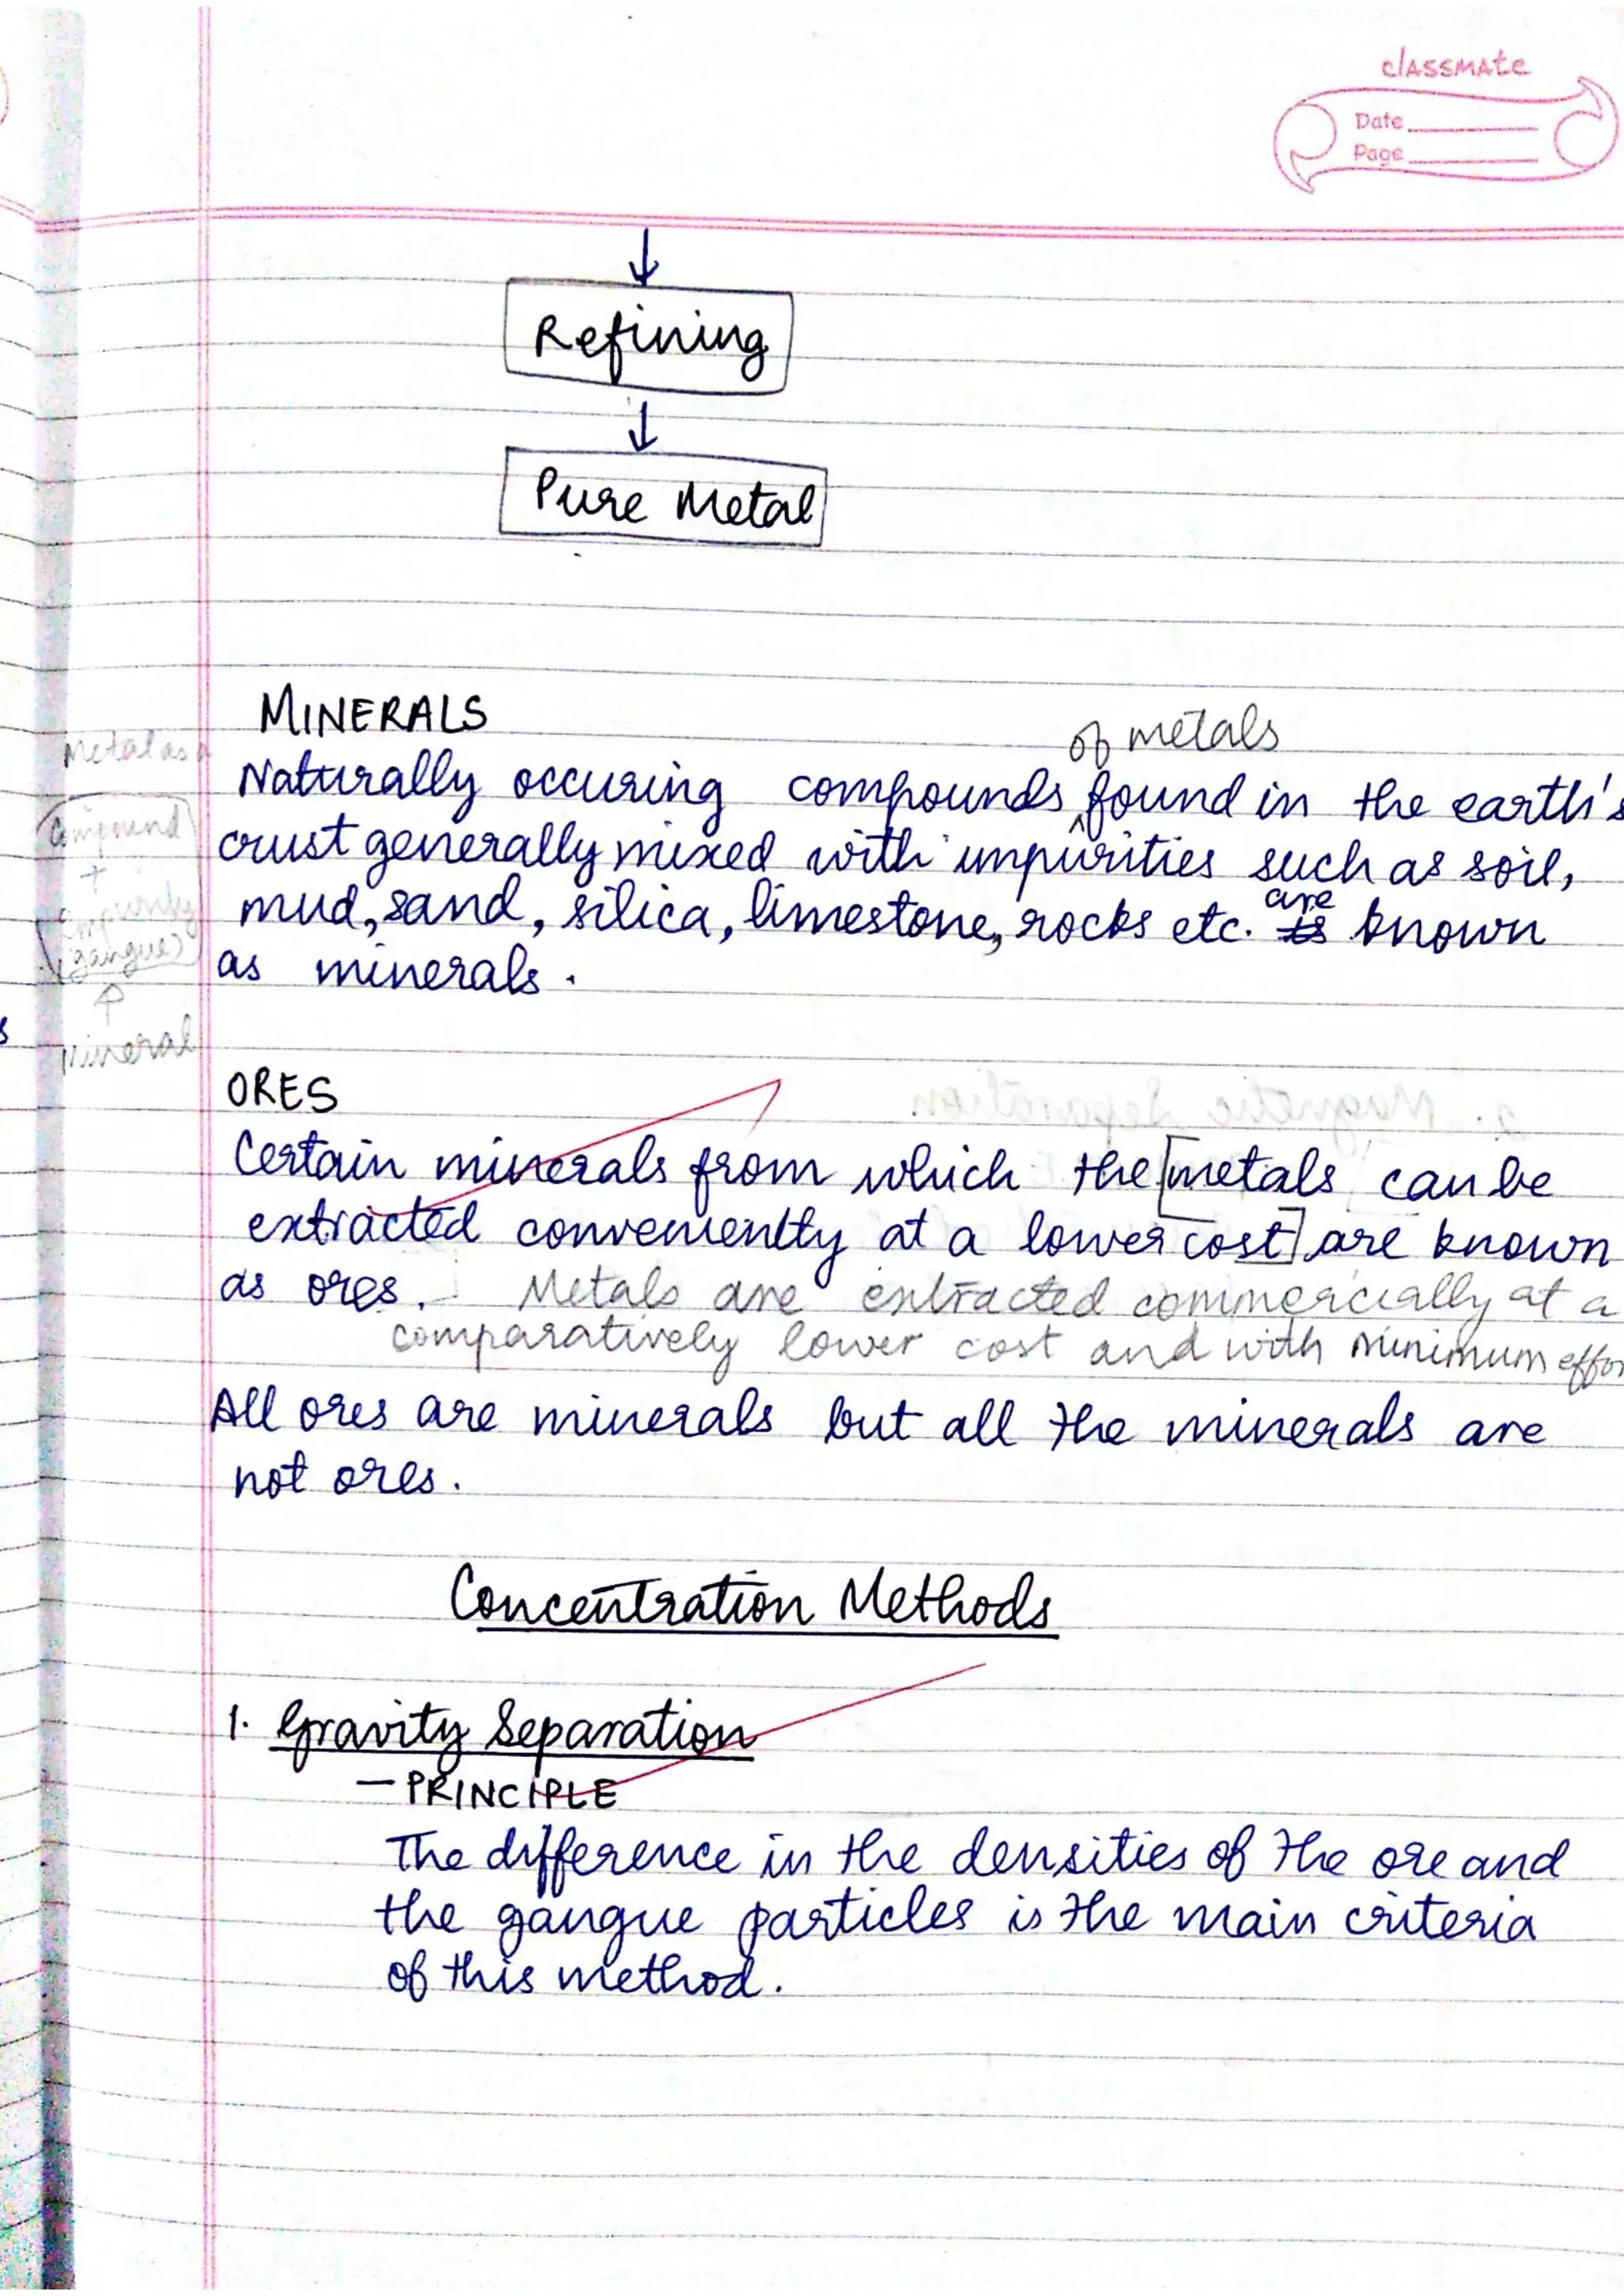 classmate
Date
Page
Refining
Pure Metal
MINERALS
of metals
Naturally occuring compounds found in the earth's
crust generally mixed with impurities such as soil,
are
mud, sand, silica, limestone, rocks etc. is known
as minerals.
Metal as a
Compound
+
Impurity
(gangue)
Mineral
ORES
2. Magnetic Separation
Certain minerals from which the [metals can be
extracted conveniently at a lower cost] are known
as ores. Metals are extracted commercially at a
comparatively lower cost and with minimum
All ores are minerals but all the minerals are
not ores.
Concentration Methods
1. Gravity Separation
— PRINCIPLE
The difference in the densities of the ore and
the gangue particles is the main criteria
of this method.